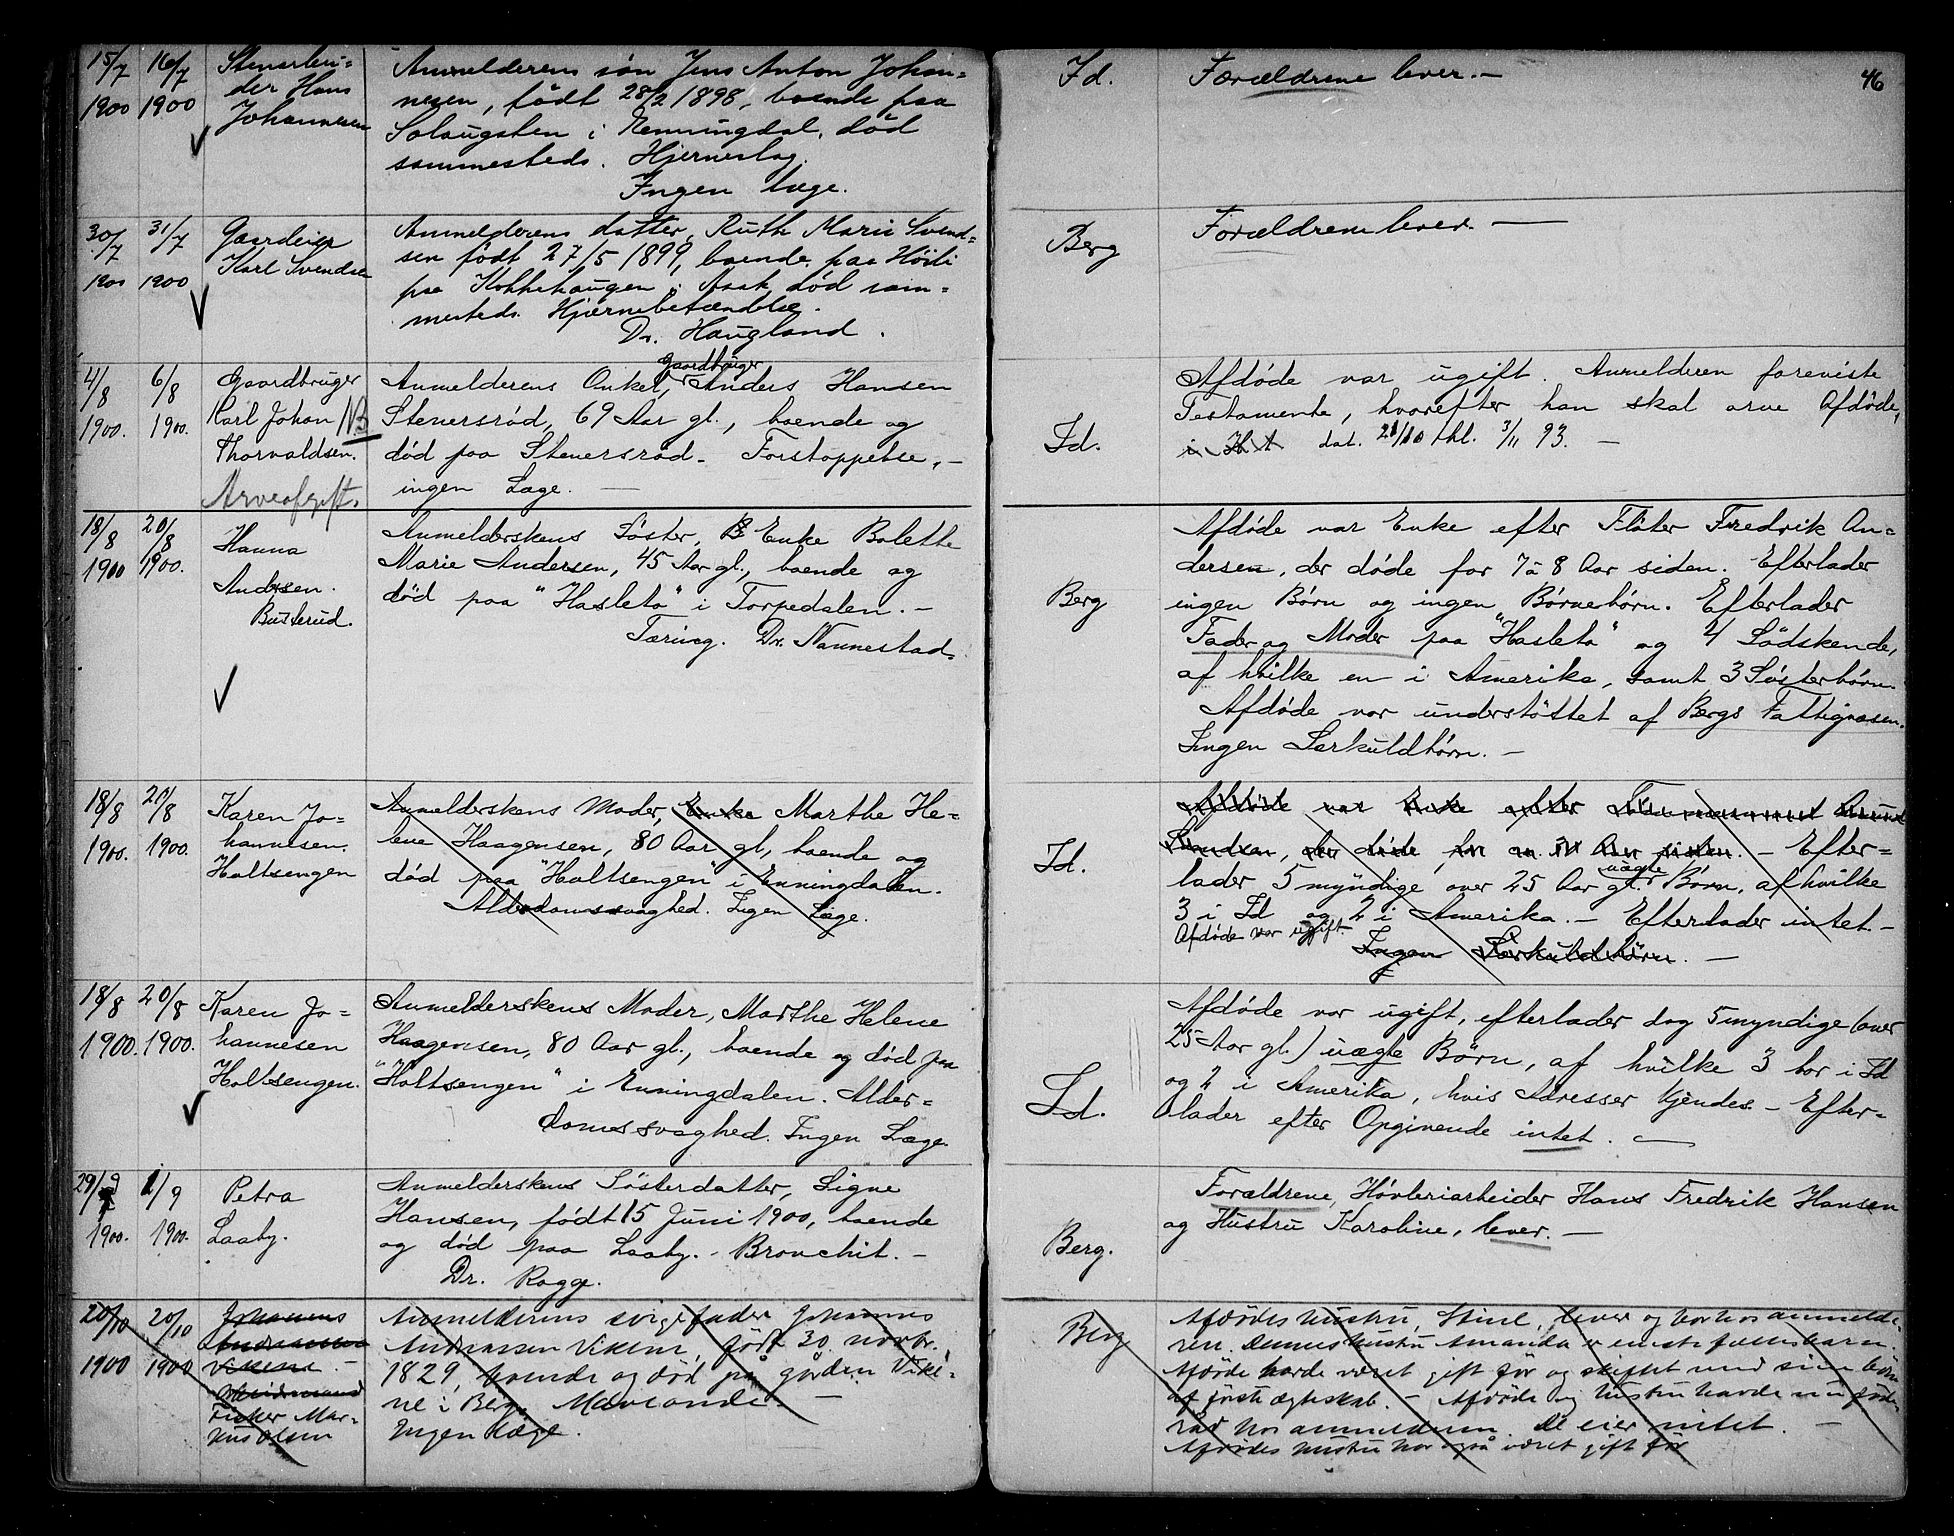 46
15/7 1900
16/7 1900
Stenarbei=
der Hans
Johannesen
Anmelderens søn Jens Anton Johan=
nesen, født 28/2 1898, boende paa
i Enningdal, død
sammesteds. Hjerneslag.
Ingen læge.
Id.
Forældrene lever. –
30/7 1900
31/7 1900
Gaardeier
Karl Svendsen
Anmelderens datter, Ruth Marie Svend=
sen født 27/5 1899, boende paa
paa Kokkehaugen i Asak, død sam=
mesteds. Hjernebetændelse.
Dr. Haugland.
Berg
Forældrene lever. —
4/8 1900.
6/8 1900.
Gaardbruger
Karl Johan NB
Thorvaldsen.
Arveafgift.
Gaardbruger
Anmelderens Onkel, Anders Hansen
Stenersrød, 69 Aar gl., boende og
død paa Stenersrød. – Forstoppelse, –
ingen Læge. —
Id.
Afdøde var ugift. Anmelderen foreviste
Testamente, hvorefter han skal arve Afdøde,
dat. 21/10 thl. 3/11 93. –
18/8 1900
20/8 1900.
Hanna
Andersen.
Busterud.
Anmelderskens Søster, Enke Bolette
Marie Andersen, 45 Aar gl., boende og
død paa "Hasleto" i Torpedalen. –
Tæring. Dr. Nannestad.
Berg
Afdøde var Enke efter Fløter Fredrik An=
dersen, der døde for 7 à 8 Aar siden. Efterlader
ingen Børn og ingen Børnebørn. Efterlader
Fader og Moder paa "Hasleto" og 4 Södskende,
af hvilke en i Amerika, samt 3 Søsterbørn.
Afdøde var understöttet af Bergs Fattigvæsen.
Ingen Særkuldbørn. –
18/8 1900.
20/8 1900.
Karen Jo=
hannesen.
Holtsengen
Anmelderskens Moder, Enke Marthe He=
lene Haagensen, 80 Aar gl., boende og
død paa "Holtsengen" i Enningdalen.
Alderdomssvaghed. Ingen Læge.
Id.
Afdøde var Enke efter
der døde for siden. – Efter=
lader 5 myndige, over 25 Aar gl. uægte Børn, af hvilke
3 i Id og 2 i Amerika. – Efterlader intet. –
Afdøde var ugift.
Ingen Særkuldbörn. —
18/8 1900.
20/8 1900.
Karen Jo=
hannesen
Holtsengen.
Anmelderskens Moder, Marthe Helene
Haagensen, 80 Aar gl., boende og død paa
"Holtsengen" i Enningdalen. Alder=
domssvaghed. Ingen Læge.
Id.
Afdøde var ugift, efterlader dog 5 myndige (over
25 Aar gl.) uægte Börn, af hvilke 3 bor i Id
og 2 i Amerika, hvis Adresser kjendes. – Efter=
lader efter Opgivende intet. —
29/ 1900.
1/9 1900.
Petra
Laaby.
Anmelderskens Søsterdatter, Signe
Hansen, født 15 Juni 1900, boende
og død paa Laaby. – Bronchit. –
Dr. Rogge.
Berg.
Forældrene, Høvleriarbeider Hans Fredrik Hansen
og Hustru Karoline, lever. –
20/10 1900
20/10 1900
Johannes
Andreassen
Vikene. –
Fisker Mar=
ius Olsen
Anmelderens svigefader Johannes
Andreassen Vikene, født 30. novbr.
1829, boende og død på gården Vike=
ne i Berg. –
Ingen læge.
Berg
Afdødes hustru, Stine, lever og bor hos anmelde=
ren. Dennes hustru Amanda er eneste fællesbarn.
Afdøde havde været gift før og skiftet med sine börn
af første ægteskab. – Afdøde og hustru havde
hos anmelderen. De eier intet. –
Afdødes hustru har også været gift før